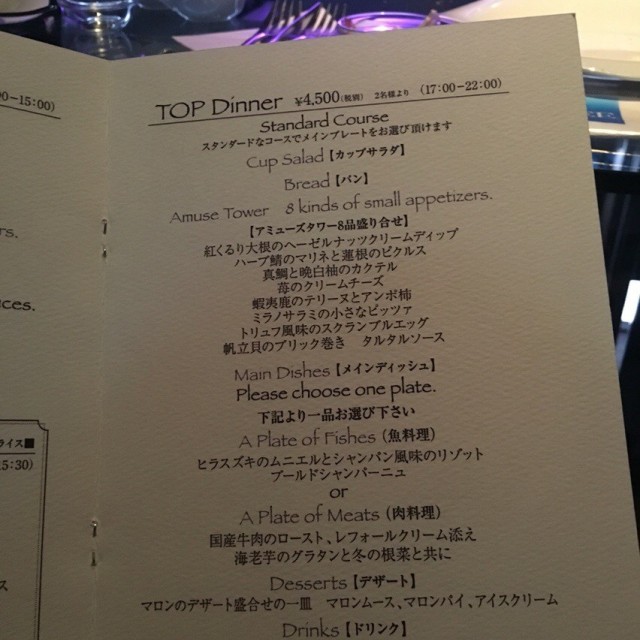 0-15:00)
rs.
ces.
ライス■
5:30)
ス
TOP Dinner ¥4,500(税別) 2名様より (17:00-22:00)
Standard Course
スタンダードなコースでメインプレートをお選び頂けます
Cup Salad【カップサラダ】
Bread【パン】
Amuse Tower 8 kinds of small appetizers.
【アミューズタワー8品盛り合せ】
紅くるり大根のヘーゼルナッツクリームディップ
ハーブ鯖のマリネと蓮根のピクルス
真鯛と晩白柚のカクテル
苺のクリームチーズ
蝦夷鹿のテリーヌとアンポ柿
ミラノサラミの小さなピッツァ
トリュフ風味のスクランブルエッグ
帆立貝のブリック巻き タルタルソース
Main Dishes【メインディッシュ】
Please choose one plate.
下記より一品お選び下さい
A Plate of Fishes (魚料理)
ヒラスズキのムニエルとシャンパン風味のリゾット
ブールドシャンパーニュ
or
A Plate of Meats (肉料理)
国産牛肉のロースト、レフォールクリーム添え
海老芋のグラタンと冬の根菜と共に
Desserts【デザート】
マロンのデザート盛合せの一皿 マロンムース、マロンパイ、アイスクリーム
Drinks【ドリンク】